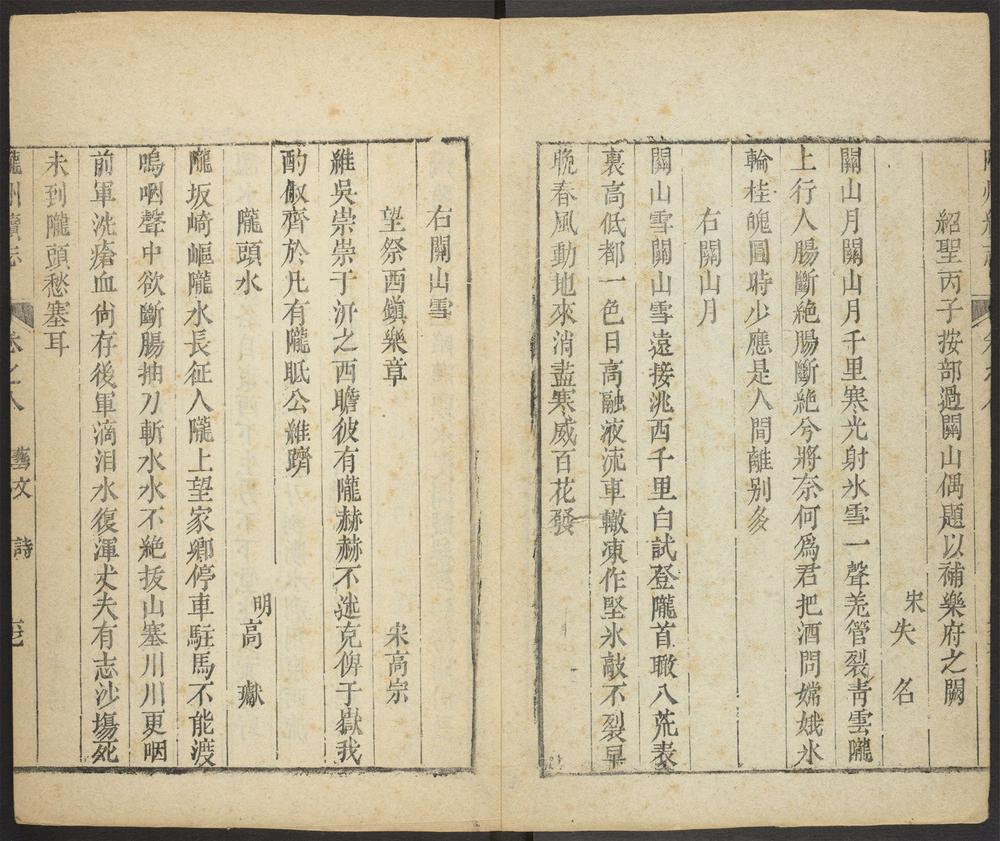 紹聖丙子按部過關山偶題以補樂府之闕
宋失 名
關山月關山月千里寒光射氷雪一聲羌管裂青雲隴
上行人腸斷絶腸斷絶兮將奈何爲君把酒問嫦娥氷
輪桂魄圓時少應是人間離别多
右關山月
關山雪關山雪遠接洮西千里白試登隴首瞰八荒表
裏高低都一色日高融液流車轍凍作堅氷敲不裂早
晩春風動地來消盡寒威百花發
右關山雪
望祭西鎭樂章
宋高宗
維吳崇崇于汧之西瞻彼有隴赫赫不迷克俾于嶽我
酌俶齊於凡有隴眂公維躋
隴頭水
明高 嶽
隴坂崎嶇隴水長征人隴上望家鄕停車駐馬不能渡
嗚咽聲中欲斷腸抽刀斬水水不絶拔山塞川川更咽
前軍洗瘡血尙存後軍滴泪水復渾丈夫有志沙塲死
未到隴頭愁塞耳
隴州續志
卷之八
藝文
詩